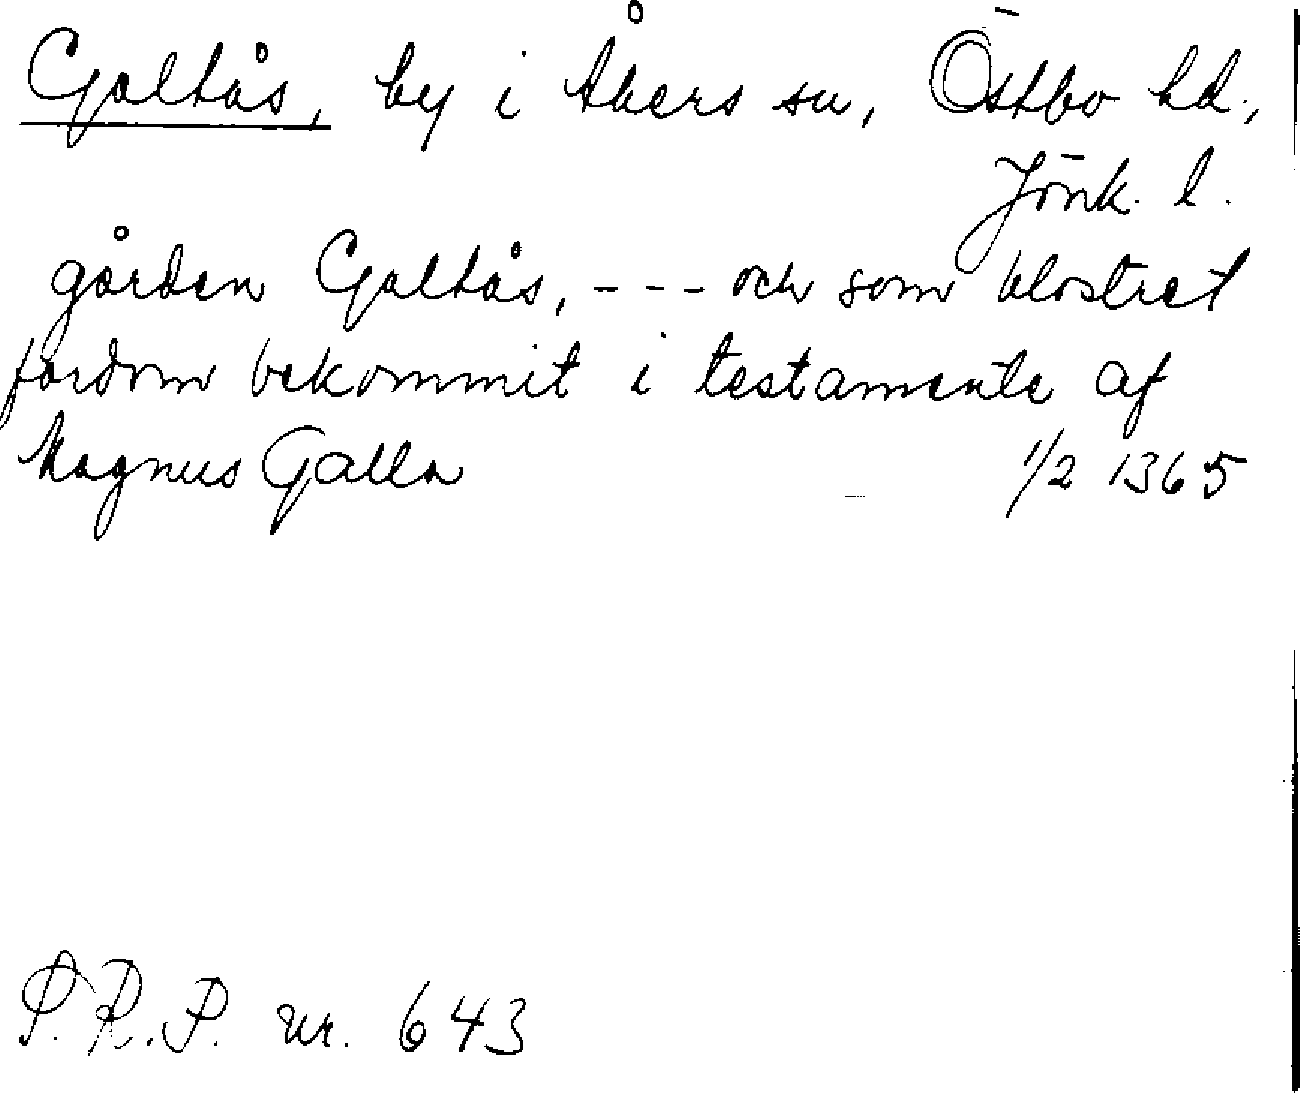 Galtås, by i Åkers sn, Östbo hd.,
Jönk. l.
gården Galtås, - - - och som klostret
fordom bekommit i testamente af
Magnus Galla 1/2 1365
P.R.P. nr. 643